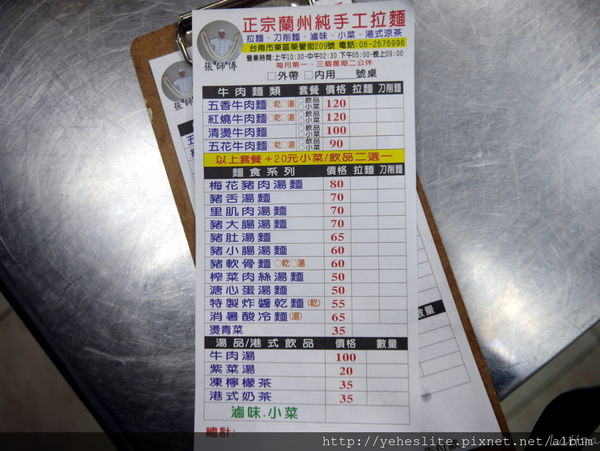 正宗蘭州純手工拉麵
拉麵、刀削麵、滷味、小菜、港式涼茶
台南市東區榮譽街209號 電話:06-2676996
營業時間:上午10:30-中午02:30 下午05:00-晚上09:00
每月第一、三個星期二公休
張師傅
□外帶 □內用 號桌
牛肉麵類 套餐 價格 拉麵 刀削麵
五香牛肉麵 ○乾○湯 ○飲品○小菜 120
紅燒牛肉麵 ○乾○湯 ○飲品○小菜 120
清燙牛肉麵 ○飲品○小菜 100
五花牛肉麵 ○乾○湯 ○飲品○小菜 90
以上套餐+20元小菜/飲品二選一
麵食系列 價格 拉麵 刀削麵
梅花豬肉湯麵 80
豬舌湯麵 70
里肌肉湯麵 70
豬大腸湯麵 70
豬肚湯麵 65
豬小腸湯麵 60
豬軟骨麵 ○乾○湯 60
榨菜肉絲湯麵 50
溏心蛋湯麵 50
特製炸醬乾麵(乾) 55
消暑酸冷麵(湯) 65
燙青菜 35
湯品/港式飲品 價格 數量
牛肉湯 100
紫菜湯 20
凍檸檬茶 35
港式奶茶 35
滷味.小菜
總計:
張師
刀削麵
數量
http://yeheslite.pixnet.net/album